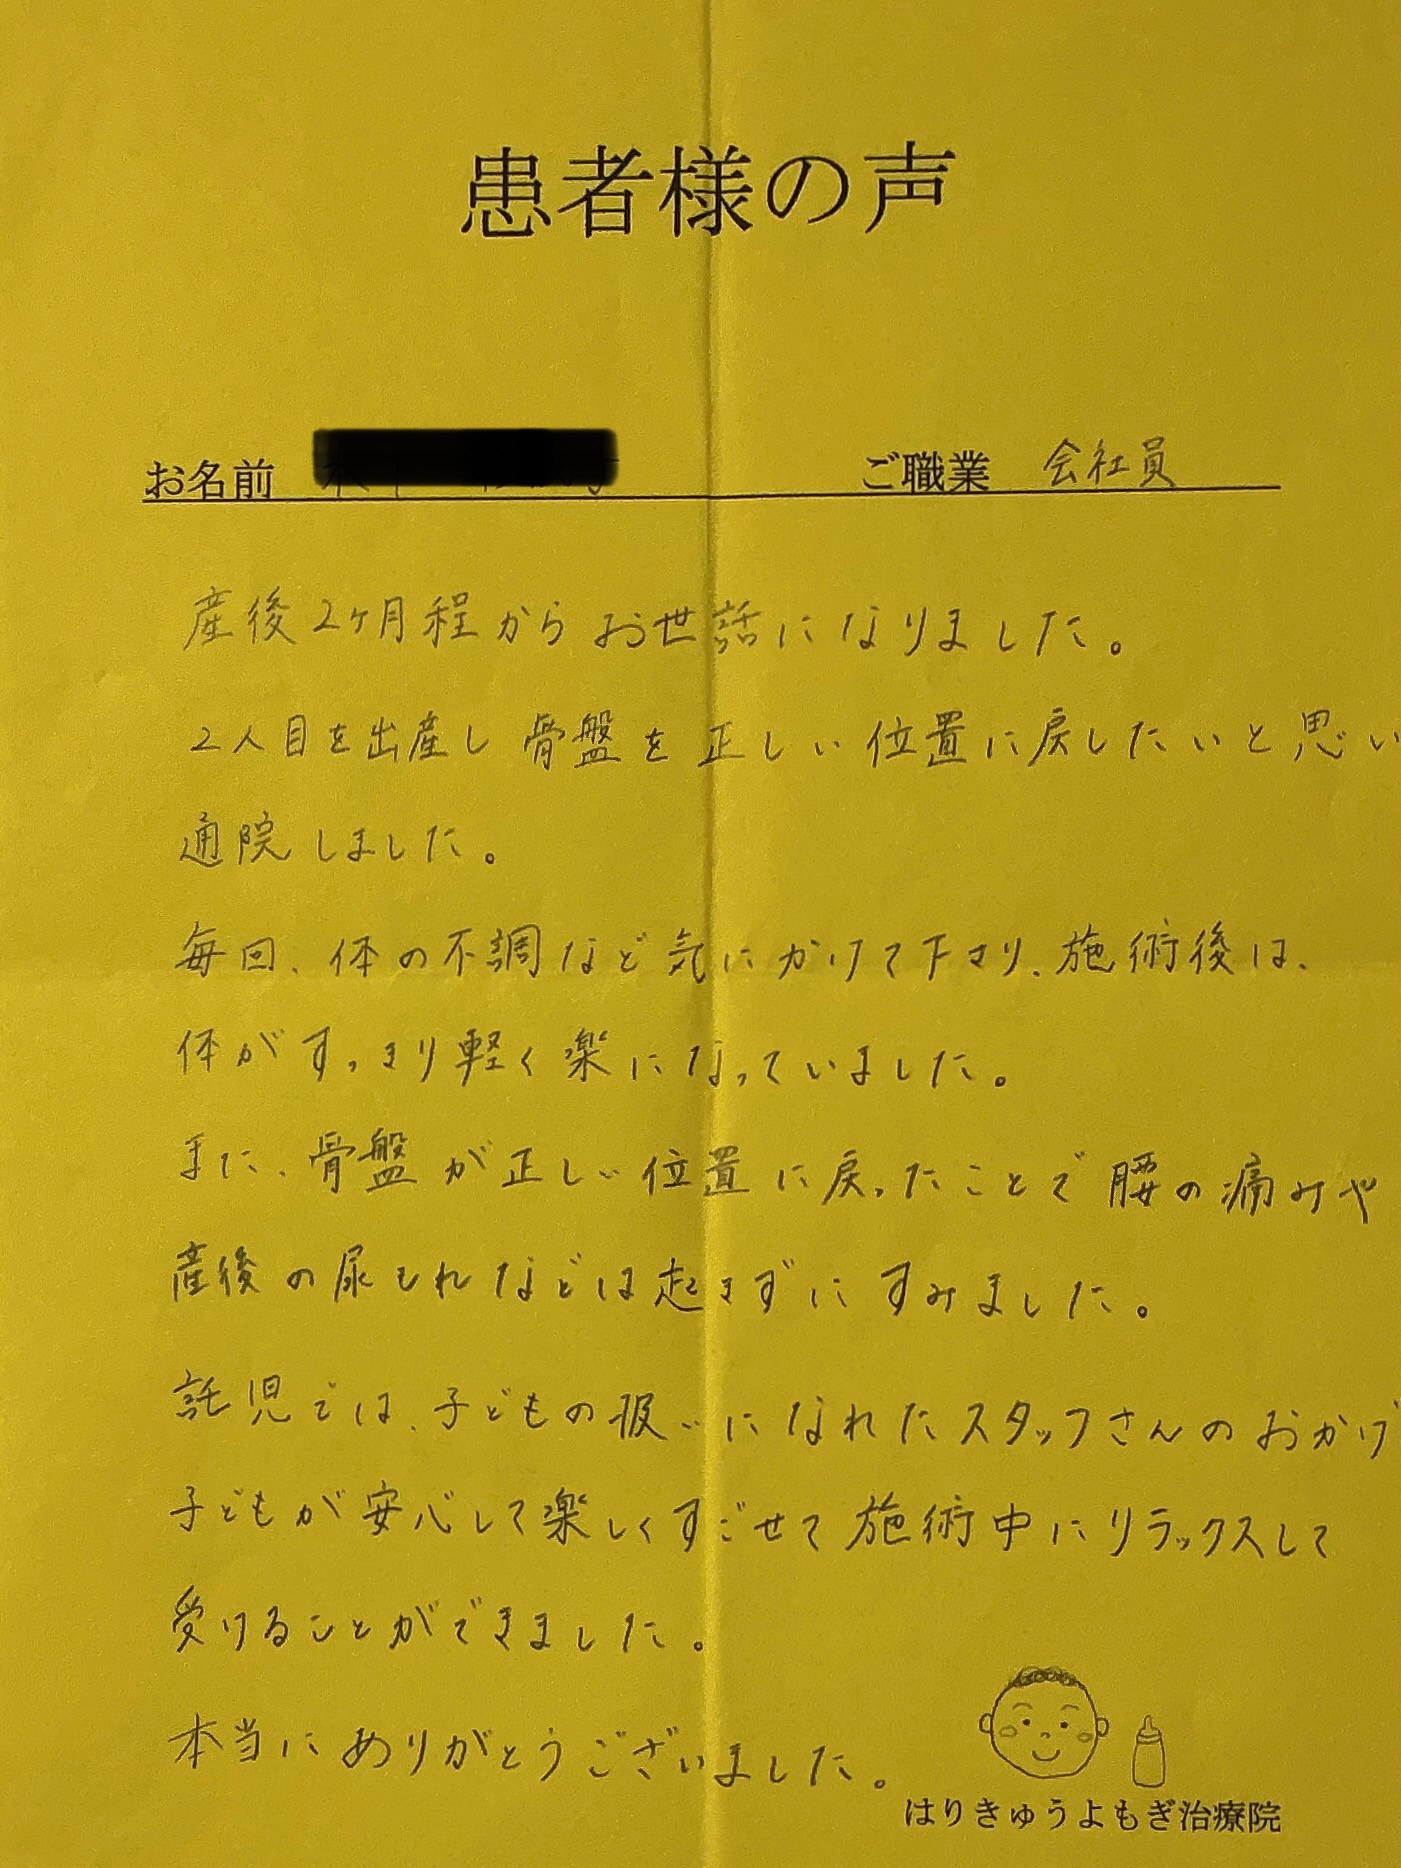 患者様の声
お名前 ご職業 会社員
産後2ヶ月程からお世話になりました。
2人目を出産し骨盤を正しい位置に戻したいと思い
通院しました。
毎回、体の不調など気にかけて下さり、施術後は、
体がすっきり軽く楽になっていました。
また、骨盤が正しい位置に戻ったことで腰の痛みや
産後の尿もれなどは起きずにすみました。
託児では、子どもの扱いになれたスタッフさんのおかげ
子どもが安心して楽しくすごせて施術中にリラックスして
受けることができました。
本当にありがとうございました。
はりきゅうよもぎ治療院